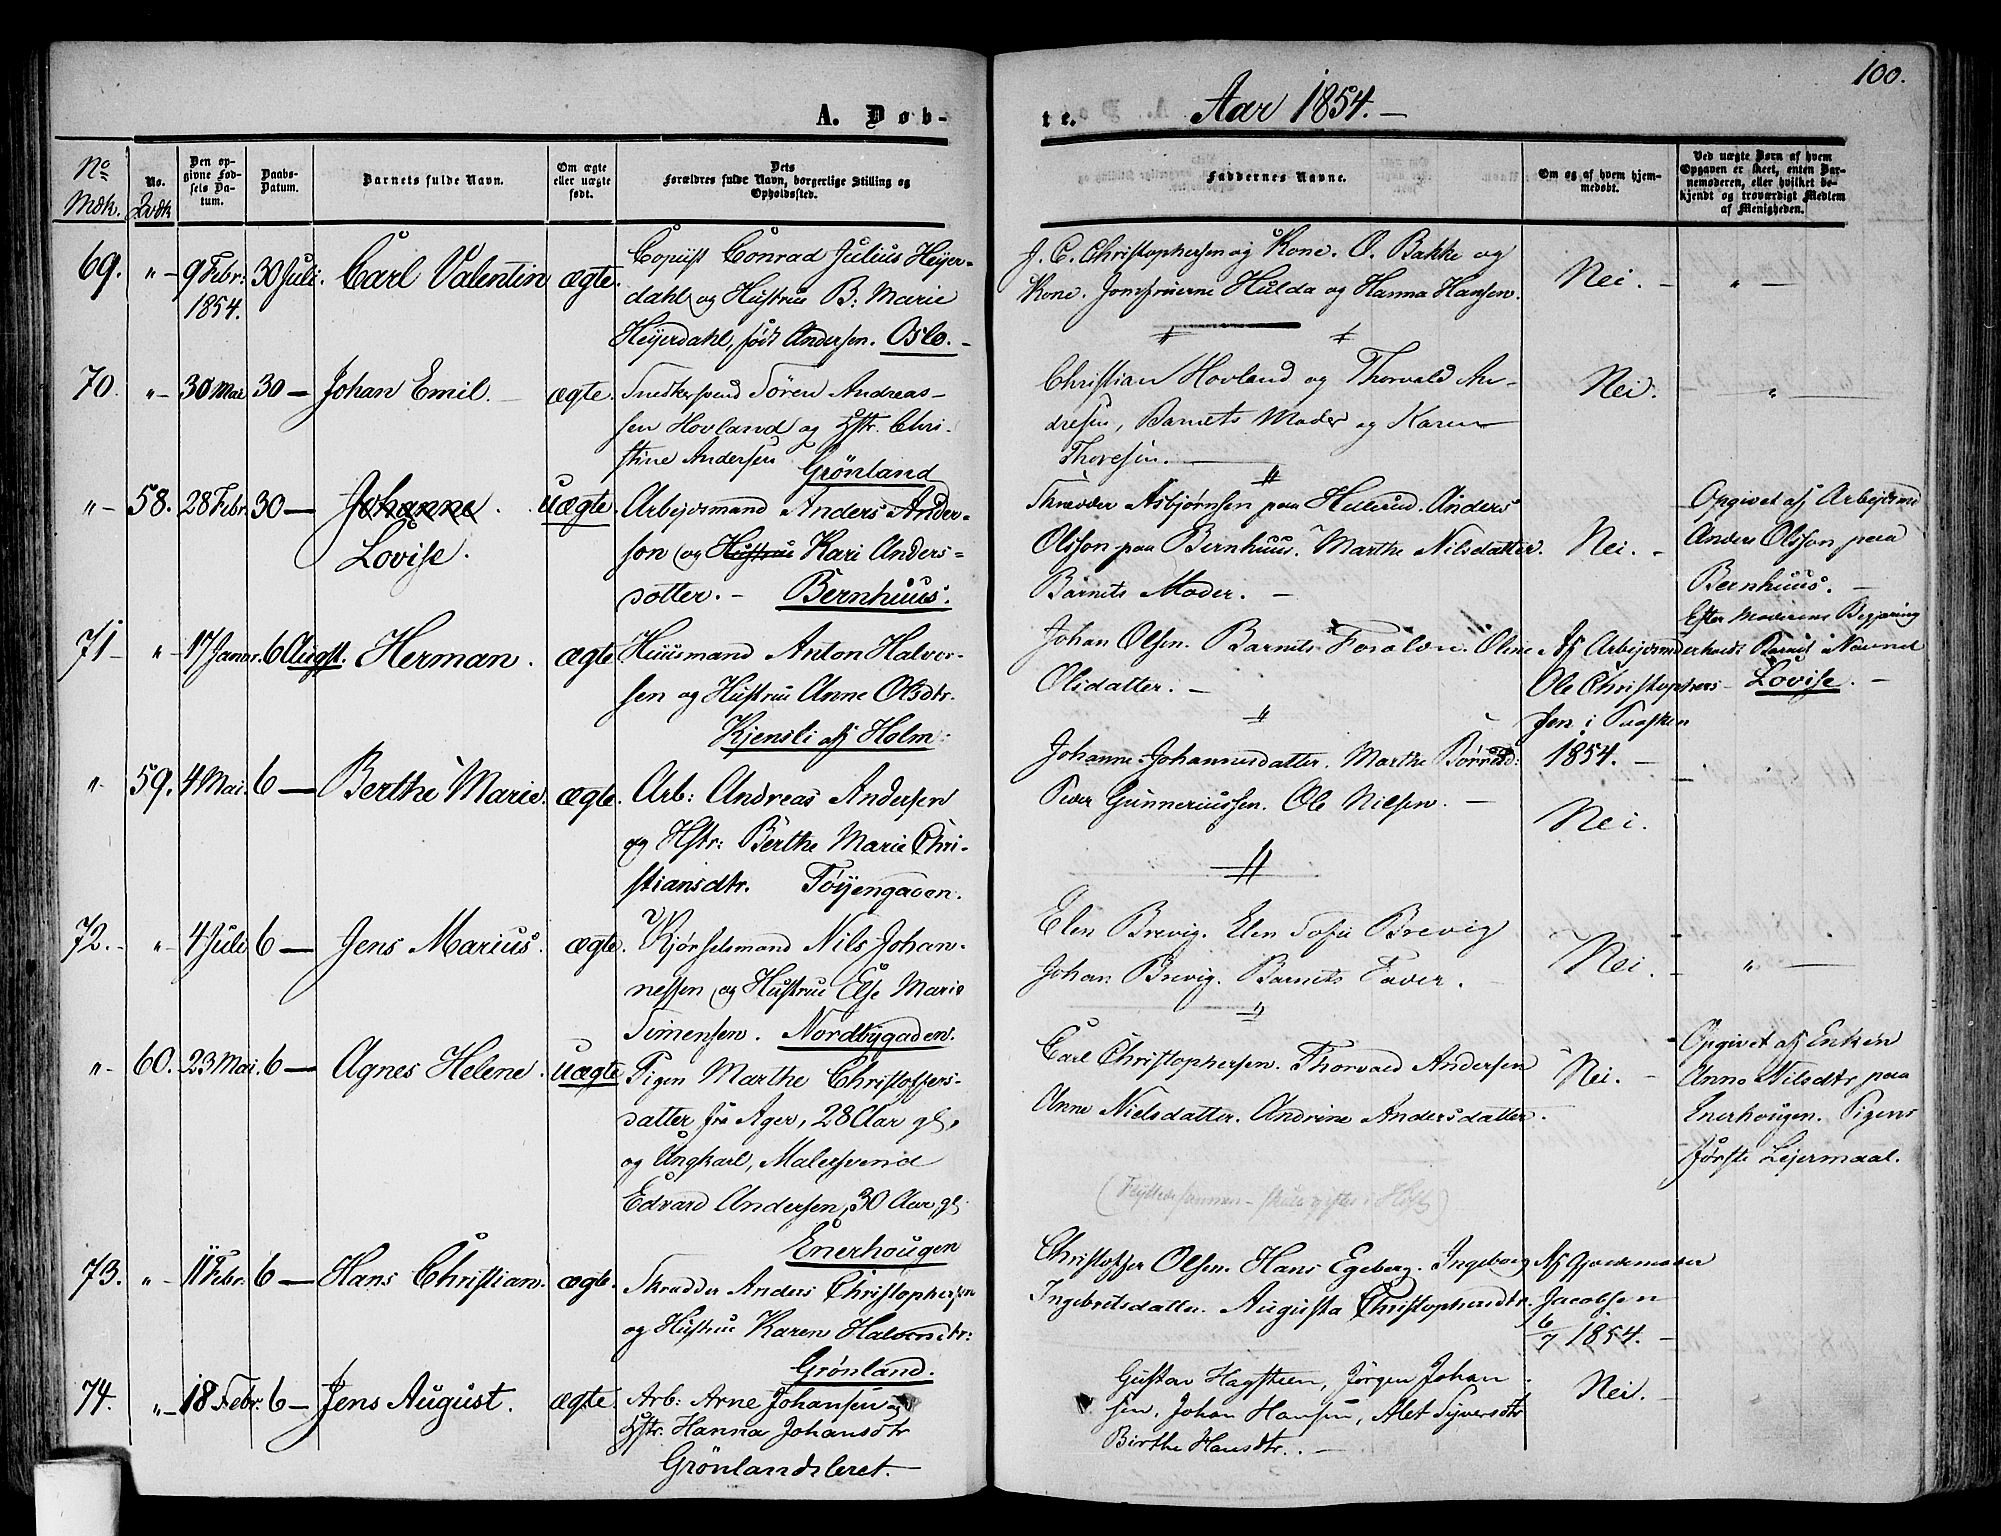 100.
A. Døb-
te.
Aar 1854. –
No Mdk.
No. Qvdk
Den opgivne Fødsels Datum.
Daabs-Datum.
Barnets fulde Navn.
Om ægte eller uægte født.
Dets Forældres fulde Navn, borgerlige Stilling og Opholdssted.
Faddernes Navne.
Om og af hvem hjemmedøbt.
Ved uægte Børn af hvem Opgaven er skeet, enten Barnemoderen, eller hvilket bekjendt og troværdigt Medlem af Menigheden.
69. „ – 9 Febr: 1854. 30 Juli. Carl Valentin ægte.
Copiist Conrad Julius Heyer-
dahl og Hustrue B. Marie
Heyerdahl, født Andersen. Oslo. –
J. C. Christophersen og Kone. O. Bakke og
Kone. Jomfruerne Hulda og Hanna Hansen.
Nei. – „ –
70. „ – 30 Mai 30 – Johan Emil. – ægte.
Snedkersvend Sören Andreas-
sen Hovland og Hstr. Chri-
stine Andersen Grönland
Christian Hovland og Thorvald An-
dresen, Barnets Moder og Karen
Thoresen. –
Nei. „
„ – 58. 28 Febr. 30 – Johanne Lovise. uægte.
Arbejdsmand Anders Ander-
son og Hustrue Kari Anders-
datter. – Bernhuus.
Asbjørnsen paa Hellerud. Anders
Olsson paa Bernhuus. Marthe Nilsdatter.
Barnets Moder. –
Nei. –
Opgivet af Arbejdsmd
Anders Olsson paa
Bernhuus. –
Efter Moderens Begjæring
Barnet Navnet
Lovise. –
71 – „ – 17 Januar. 6 Augst. Herman. ægte
Huusmand Anton Halvor-
sen og Hustrue Anne Olsdtr.
Kjensli af Holm.
Johan Olsen. Barnets Forældre. Oline
Olsdatter. –
Af Arbejdsmd
Ole Christophers-
sen i Paasken
1854. –
„ 59. 4 Mai. 6 – Berthe Marie. ægte.
Arb: Andreas Andersen
og Hstr: Berthe Marie Chri-
stiansdtr. Töyengaden.
Johanne Johannesdatter. Marthe
Peder Gunneriussen. Ole Nilsen. –
Nei.
72. – „ 4 Juli 6 – Jens Marius. ægte.
Kjørselsmand Nils Johan-
nessen og Hustrue Else Marie
Simensen. Nordbygaden.
Elen Brevig. Elen Sofie Brevig
Johan Brevig. Barnets Fader.
Nei. – „ –
„ – 60. 23 Mai. 6 – Agnes Helene. uægte
Pigen Marthe Christoffers-
datter fra Ager, 28 Aar gl,
og Ungkarl, Malersvend
Edvard Andersen, 30 Aar gl.
Enerhougen
Carl Christophersen. Thorvald Andersen
Anne Nielsdatter. Andrine Andersdatter.
Nei. –
Opgivet af Enken
Anne Nilsdtr paa
Enerhougen. Pigens
første Lejermaal.
73. „ – 11 Febr. 6 – Hans Christian. ægte.
Skrædder Anders Christophersen
og Hustrue Karen Halvorsdtr:
Grønland.
Christoffer Olsen. Hans Egeberg. Ingeborg
Ingebretsdatter. Augusta Christophersdtr.
Af Gjordemoder
Jacobsen
6/7 1854. –
74. „ – 18 Febr. 6 – Jens August. ægte.
Arb: Arne Johansen og
Hstr. Hanna Johansdtr
Grönlandsleret. –
Gustav Hagsteen, Jørgen Johan
sen. Johan Hansen, Alet Syversdtr
Birthe Hansdtr. –
Nei. –